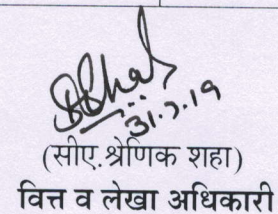 31.7.19
(सीए.श्रेणिक शहा)
वित्त व लेखा अधिकारी